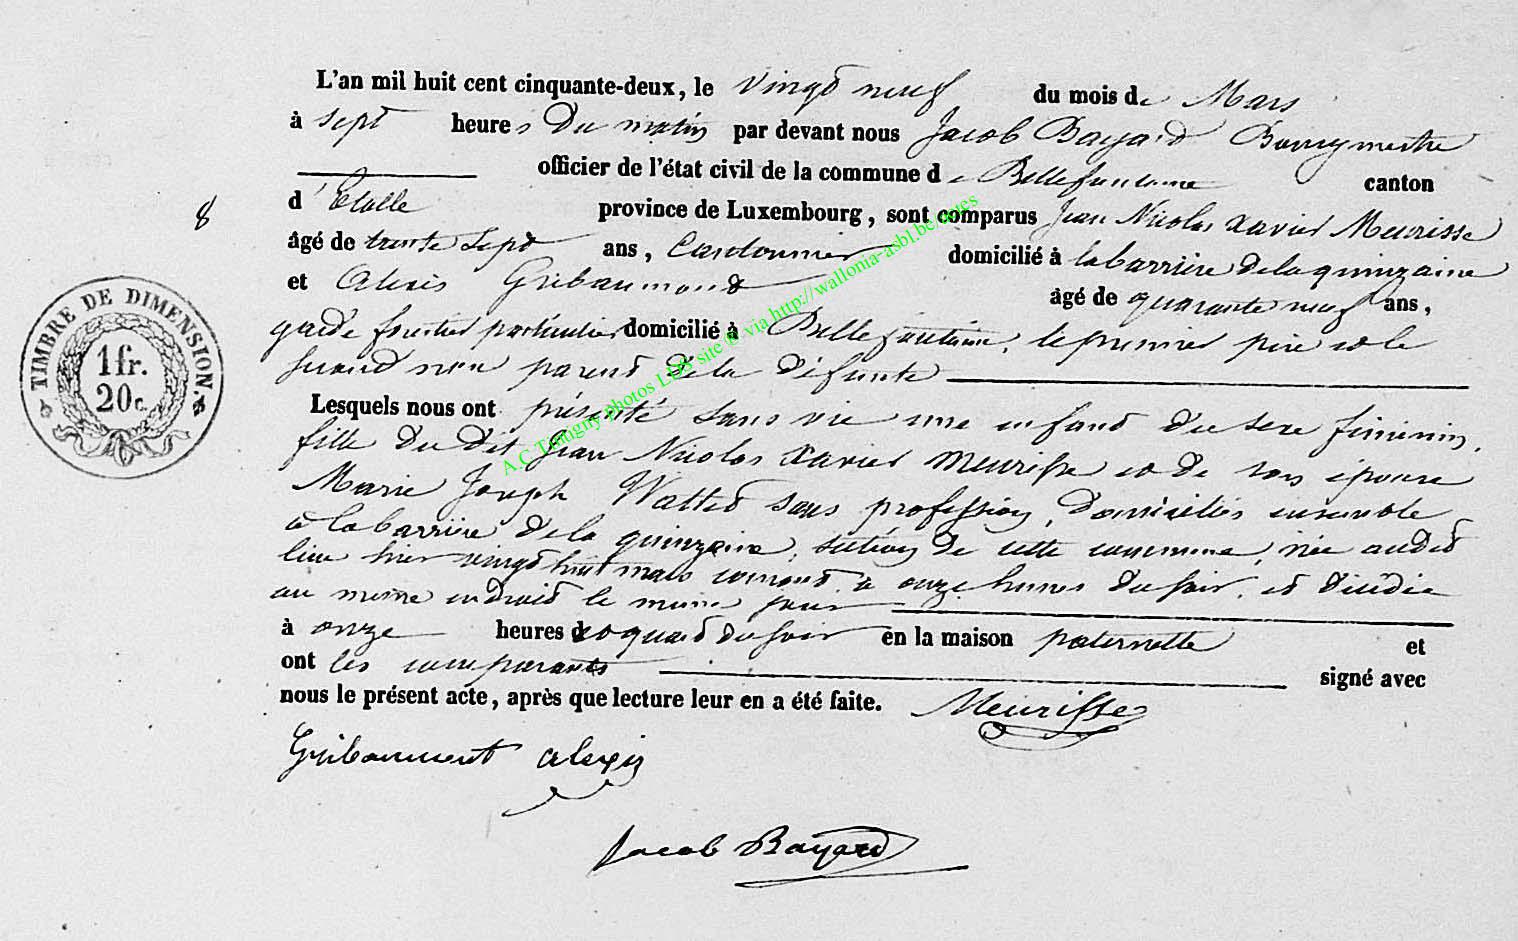 L'an mil huit cent cinquante-deux, le vingt neuf du mois de Mars
à sept heures du matin par devant nous Jacob Bayard Bourgmestre
officier de l'état civil de la commune de Bellefontaine canton
8
d'Etalle province de Luxembourg, sont comparus Jean Nicolas Xavier Meurisse
âgé de trente sept ans, Cantonnier domicilié à la barrière de la quinzaine
et Alexis Gribaumont âgé de quarante neuf ans,
garde forestier particulier domicilié à Bellefontaine, le premier père et le
second non parent de la défunte
Lesquels nous ont présenté sans vie une enfant du sexe féminin,
fille du dit Jean Nicolas Xavier Meurisse et de son épouse
Marie Joseph Watted sans profession, domiciliés ensemble
à la barrière de la quinzaine, section de cette commune, née audit
lieu hier vingt huit mars courant à onze heures du soir, et décédée
au même endroit le même jour
à onze heures et quart du soir en la maison paternelle et
ont les comparants signé avec
nous le présent acte, après que lecture leur en a été faite. Meurisse
Gribaumont alexis
Jacob Bayard
TIMBRE DE DIMENSION.
1fr.
20c.
A.C Tintigny photos LDB site @ via http://wallonia-asbl.be/actes